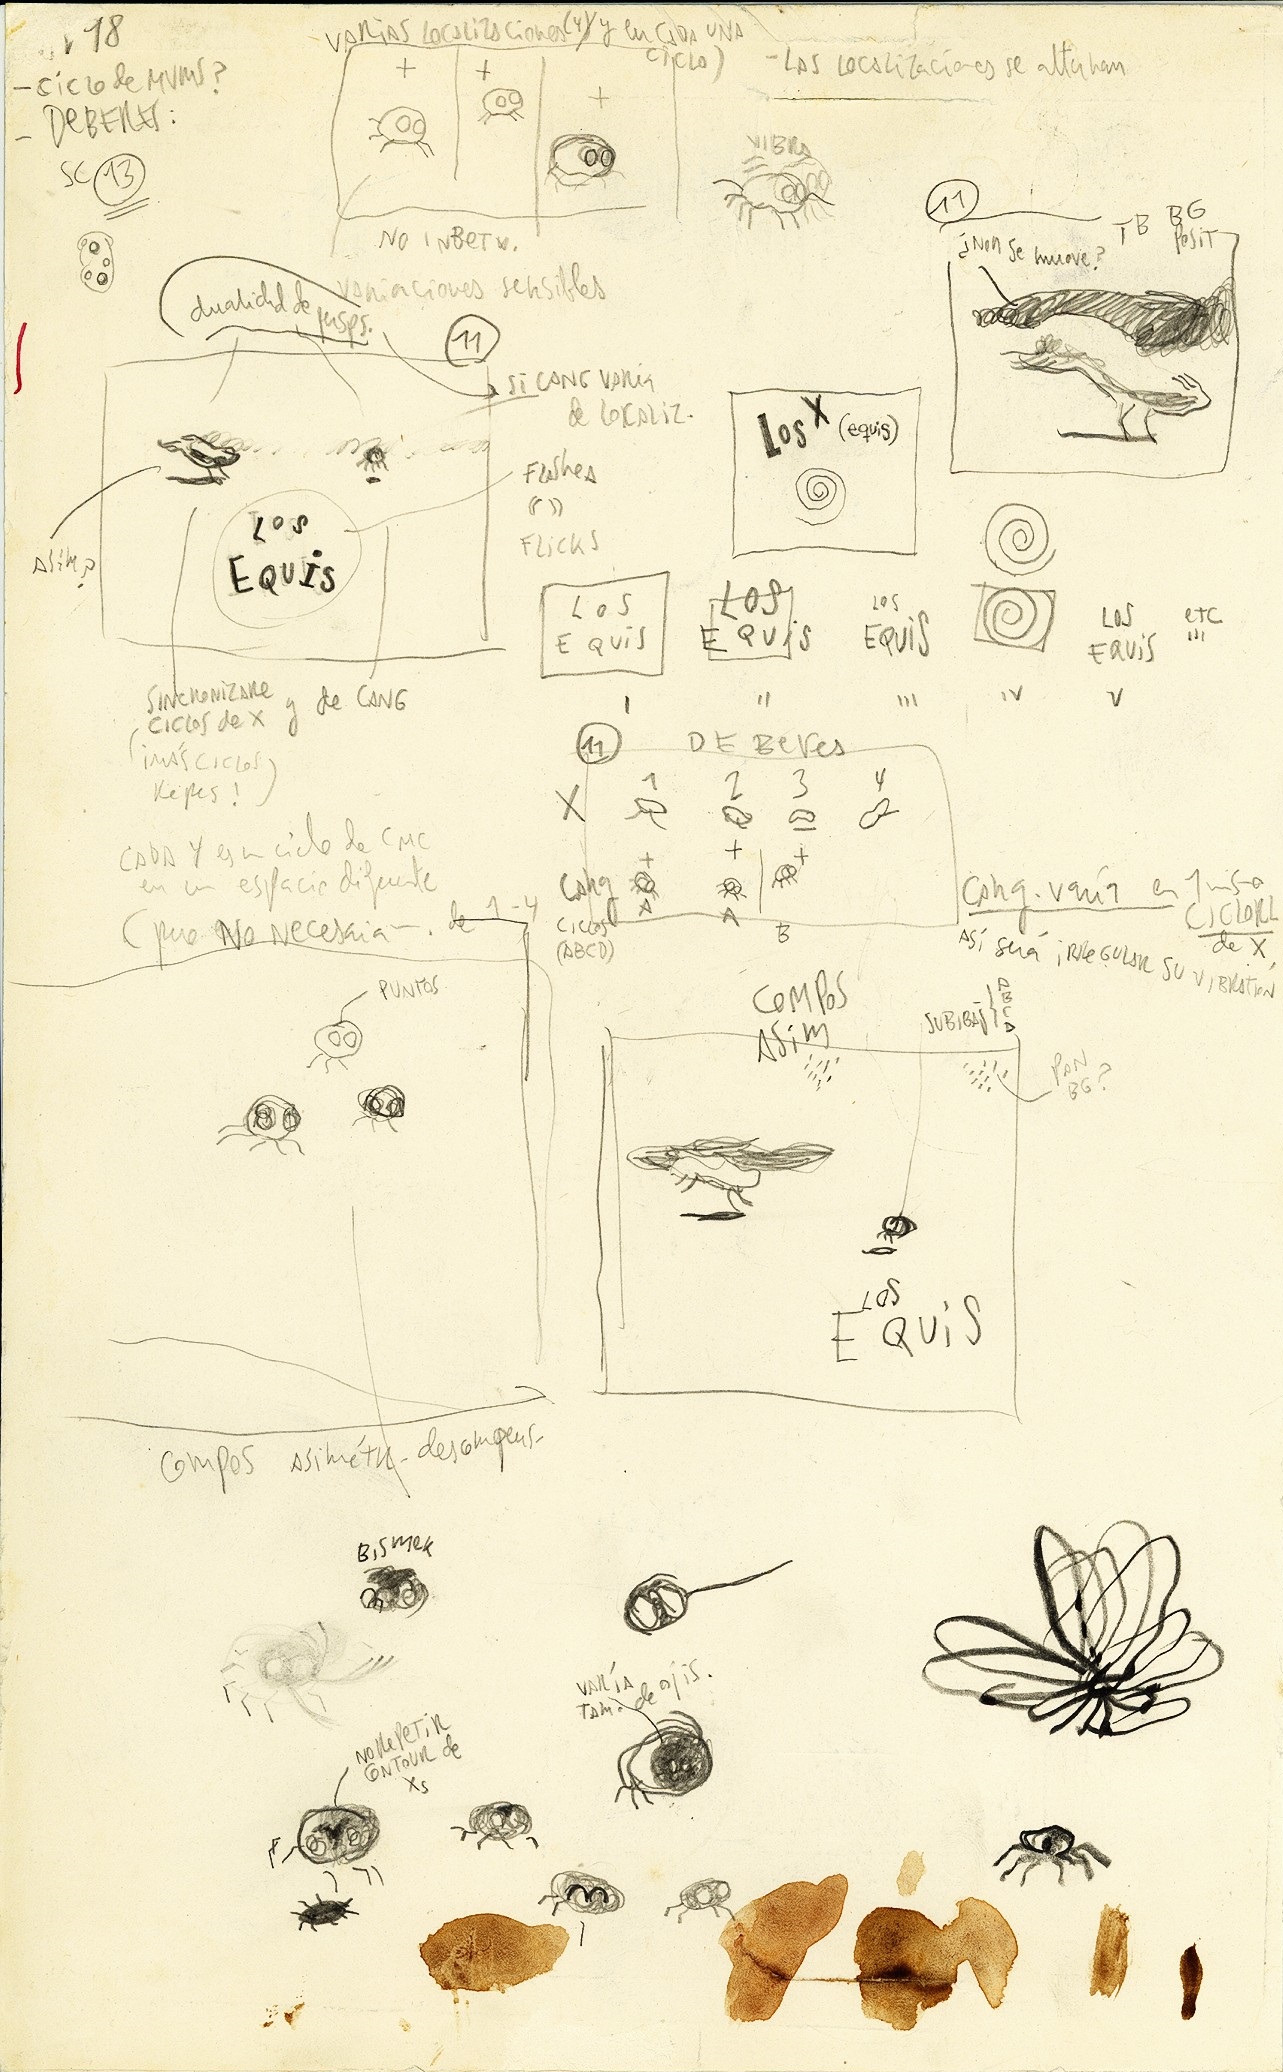 18
VARIAS LOCALIZACIONES (4) y en CADA UNA
CICLO)
- LAS LOCALIZACIONES se alternan
- CICLO de MVMS?
- DEBERES:
SC 13
VIBRA
NO INBETW.
variaciones sensibles
dualidad de
11
TB BG
POSIT
¿Non se mueve?
11
SI CANG VARÍA
de LOCALIZ.
Los X (equis)
FLASHES
FLICKS
ASIM?
LOS
EQUIS
LOS
EQUIS
LOS
EQUIS
LOS
EQUIS
LOS
EQUIS
etc
I
II
III
IV
V
SINCRONIZARE
CICLOS de X y de CANG
(¡MÁS CICLOS
Repes!)
11 DEBERES
1 2 3 4
X
CANG
CICLOS
(ABCD)
A A B
CADA Y es un ciclo de CMC
en un espacio diferente
(pero NO necesaria—. de 1-4
CANG. varía en 1 mismo
CICLO RL
de X,
ASÍ SERÁ IRREGULAR SU VIBRATION
PUNTOS
COMPOS
ASIM
SUBIBAJ
A
B
C
D
PAN
BG?
LOS
EQUIS
COMPOS ASIMÉTR- descompens-
BISMER
VARÍA
TAM. de ojis.
NO REPETIR
CONTOUR de
Xs